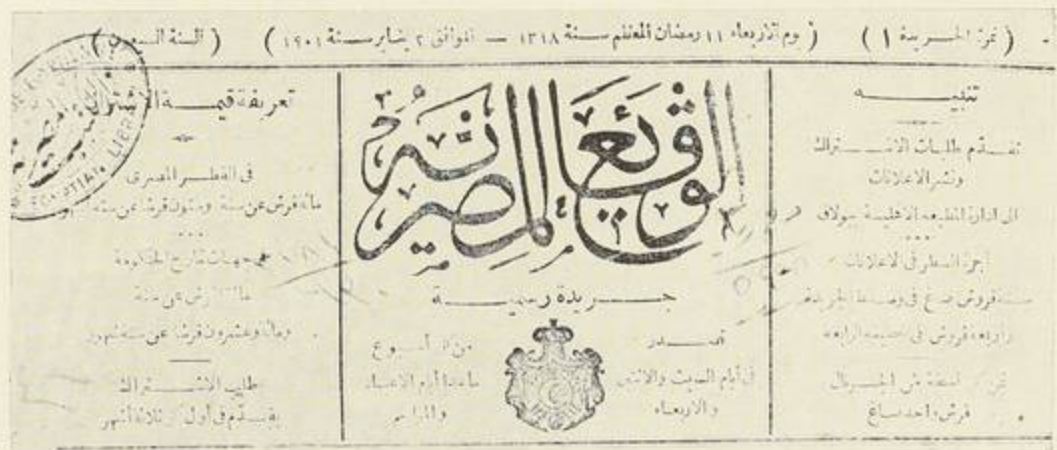 (نمرة الجريدة ١) (يوم الاربعاء ١١ رمضان المعظم سنة ١٣١٨ — الموافق ٢ يناير سنة ١٩٠١) (السنة السبعون)
تنبيه
تقدّم طلبات الاشتراك
ونشر الاعلانات
الى ادارة المطبعة الاهلية ببولاق
أجرة السطر فى الاعلانات
ستة قروش صاغ فى وسط الجريدة
وأربعة قروش فى الصحيفة الرابعة
ثمن النسخة من الجرنال
قرش واحد صاغ
الوقائع المصرية
جريدة رسمية
تصدر
فى أيام السبت والاثنين
والاربعاء
من كل أسبوع
ماعدا أيام الاعياد
والمواسم
تعريفة قيمة الاشتراك
فى القطر المصرى
مائة قرش عن سنة وستون قرشا عن ستة
جهات خارج الحكومة
عن سنة
ومائة وعشرون قرشا عن ستة شهور
طلب الاشتراك
يقدّم فى أول كل ثلاثة أشهر
EGYPTIAN LIBRA